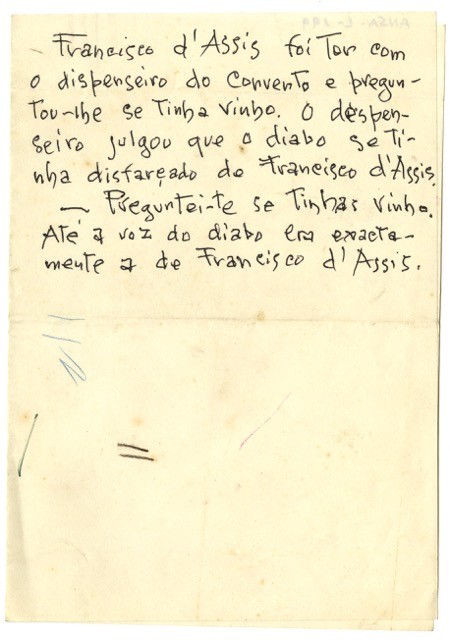 Francisco d'Assis foi ter com
o dispenseiro do convento e pregun-
tou-lhe se tinha vinho. O despen-
seiro julgou que o diabo se ti-
nha disfarçado de Francisco d'Assis.
— Preguntei-te se tinhas vinho.
Até a voz do diabo era exacta-
mente a de Francisco d'Assis.